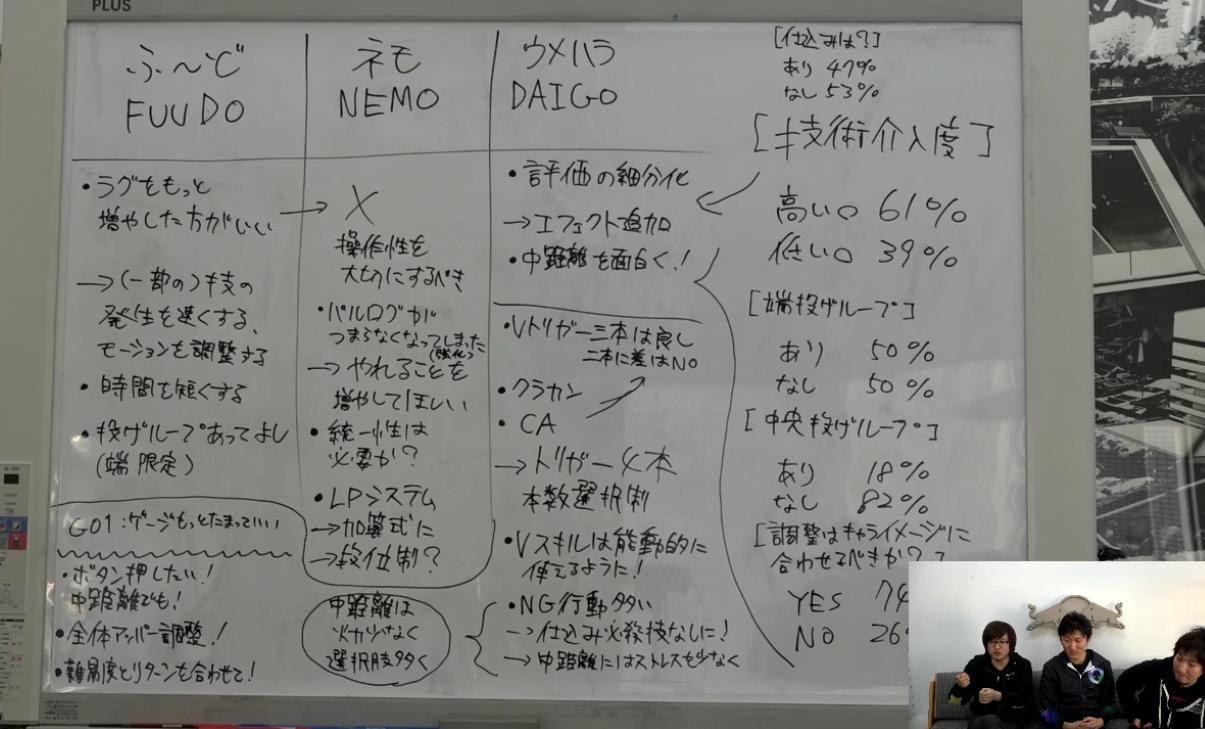 PLUS
ふ〜ど
FUUDO
・ラグをもっと
増やした方がいい
→(一部の)技の
発生を速くする、
モーションを調整する
・時間を短くする
・投げループあってよし
(端限定)
G01:ゲージもっとたまっていい
・ボタン押したい!
中距離でも!
・全体アッパー調整!
・難易度とリターンを合わせて!
ネモ
NEMO
→ X
操作性を
大切にするべき
・バルログが
つまらなくなってしまった
(強化)
→やれることを
増やしてほしい
・統一性は
必要か?
・LPシステム
→加算式に
→段位制?
中距離は
火力少なく
選択肢多く
ウメハラ
DAIGO
・評価の細分化
→エフェクト追加
・中距離を面白く!
・Vトリガー三本は良し
二本に差はNO
・クラカン
・CA
→トリガー4本
本数選択制
・Vスキルは能動的に
使えるように!
・NG行動多い
→仕込み必殺技なしに!
→中距離にはストレスを少なく
[仕込みは?]
あり 47%
なし 53%
[技術介入度]
高い。 61%
低い。 39%
[端投げループ]
あり 50%
なし 50%
[中央投げループ]
あり 18%
なし 82%
[調整はキャライメージに
合わせるべきか?]
YES
NO